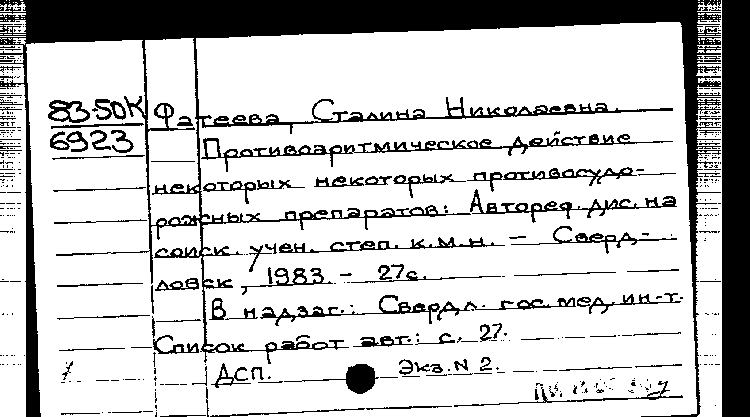 83-50К Фатеева, Сталина Николаевна.
6923
Противоаритмическое действие
некоторых некоторых противосудо-
рожных препаратов: Автореф. дис. на
соиск. учен. степ. к.м.н. – Сверд-
ловск, 1983. – 27с.
В надзаг.: Свердл. гос. мед. ин-т.
Список работ авт.: с. 27.
ДСП. Экз. N 2.